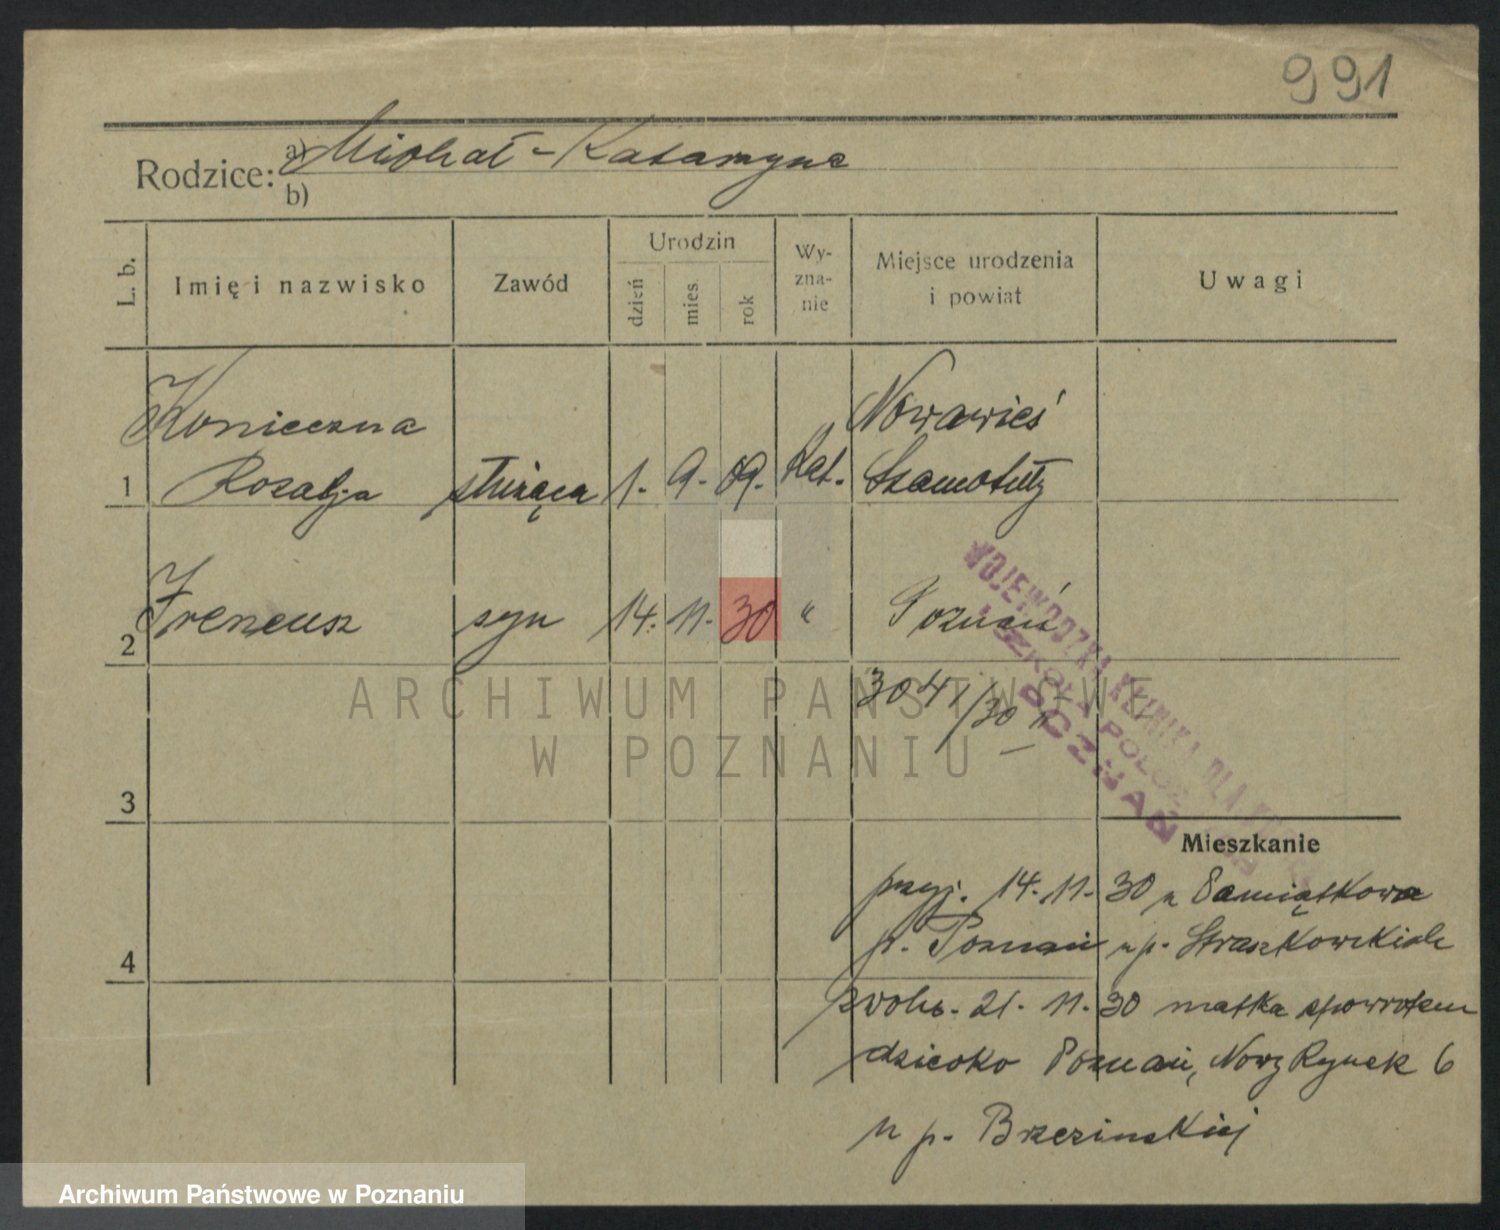 991
Rodzice: a) Michał - Katarzyna
b)
L. b.
Imię i nazwisko
Zawód
Urodzin
dzień
mies.
rok
Wy-
zna-
nie
Miejsce urodzenia
i powiat
Uwagi
Konieczna Nowawieś
1 Rozalja służąca 1. 9. 09. Kat. Szamotuły
2 Ireneusz syn 14. 11. 30 " Poznań
3041/30
WOJEWÓDZKA KLINIKA DLA
SZKOŁA POŁOŻ
POZNAŃ
3
Mieszkanie
przyj. 14. 11. 30 z Pamiątkowa
p. Poznań u p. Straszkowskich
4
zwoln. 21. 11. 30 matka spowrotem
dziecko Poznań, Nowy Rynek 6
u p. Brzezinskiej
ARCHIWUM PAŃSTWOWE
W POZNANIU
Archiwum Państwowe w Poznaniu